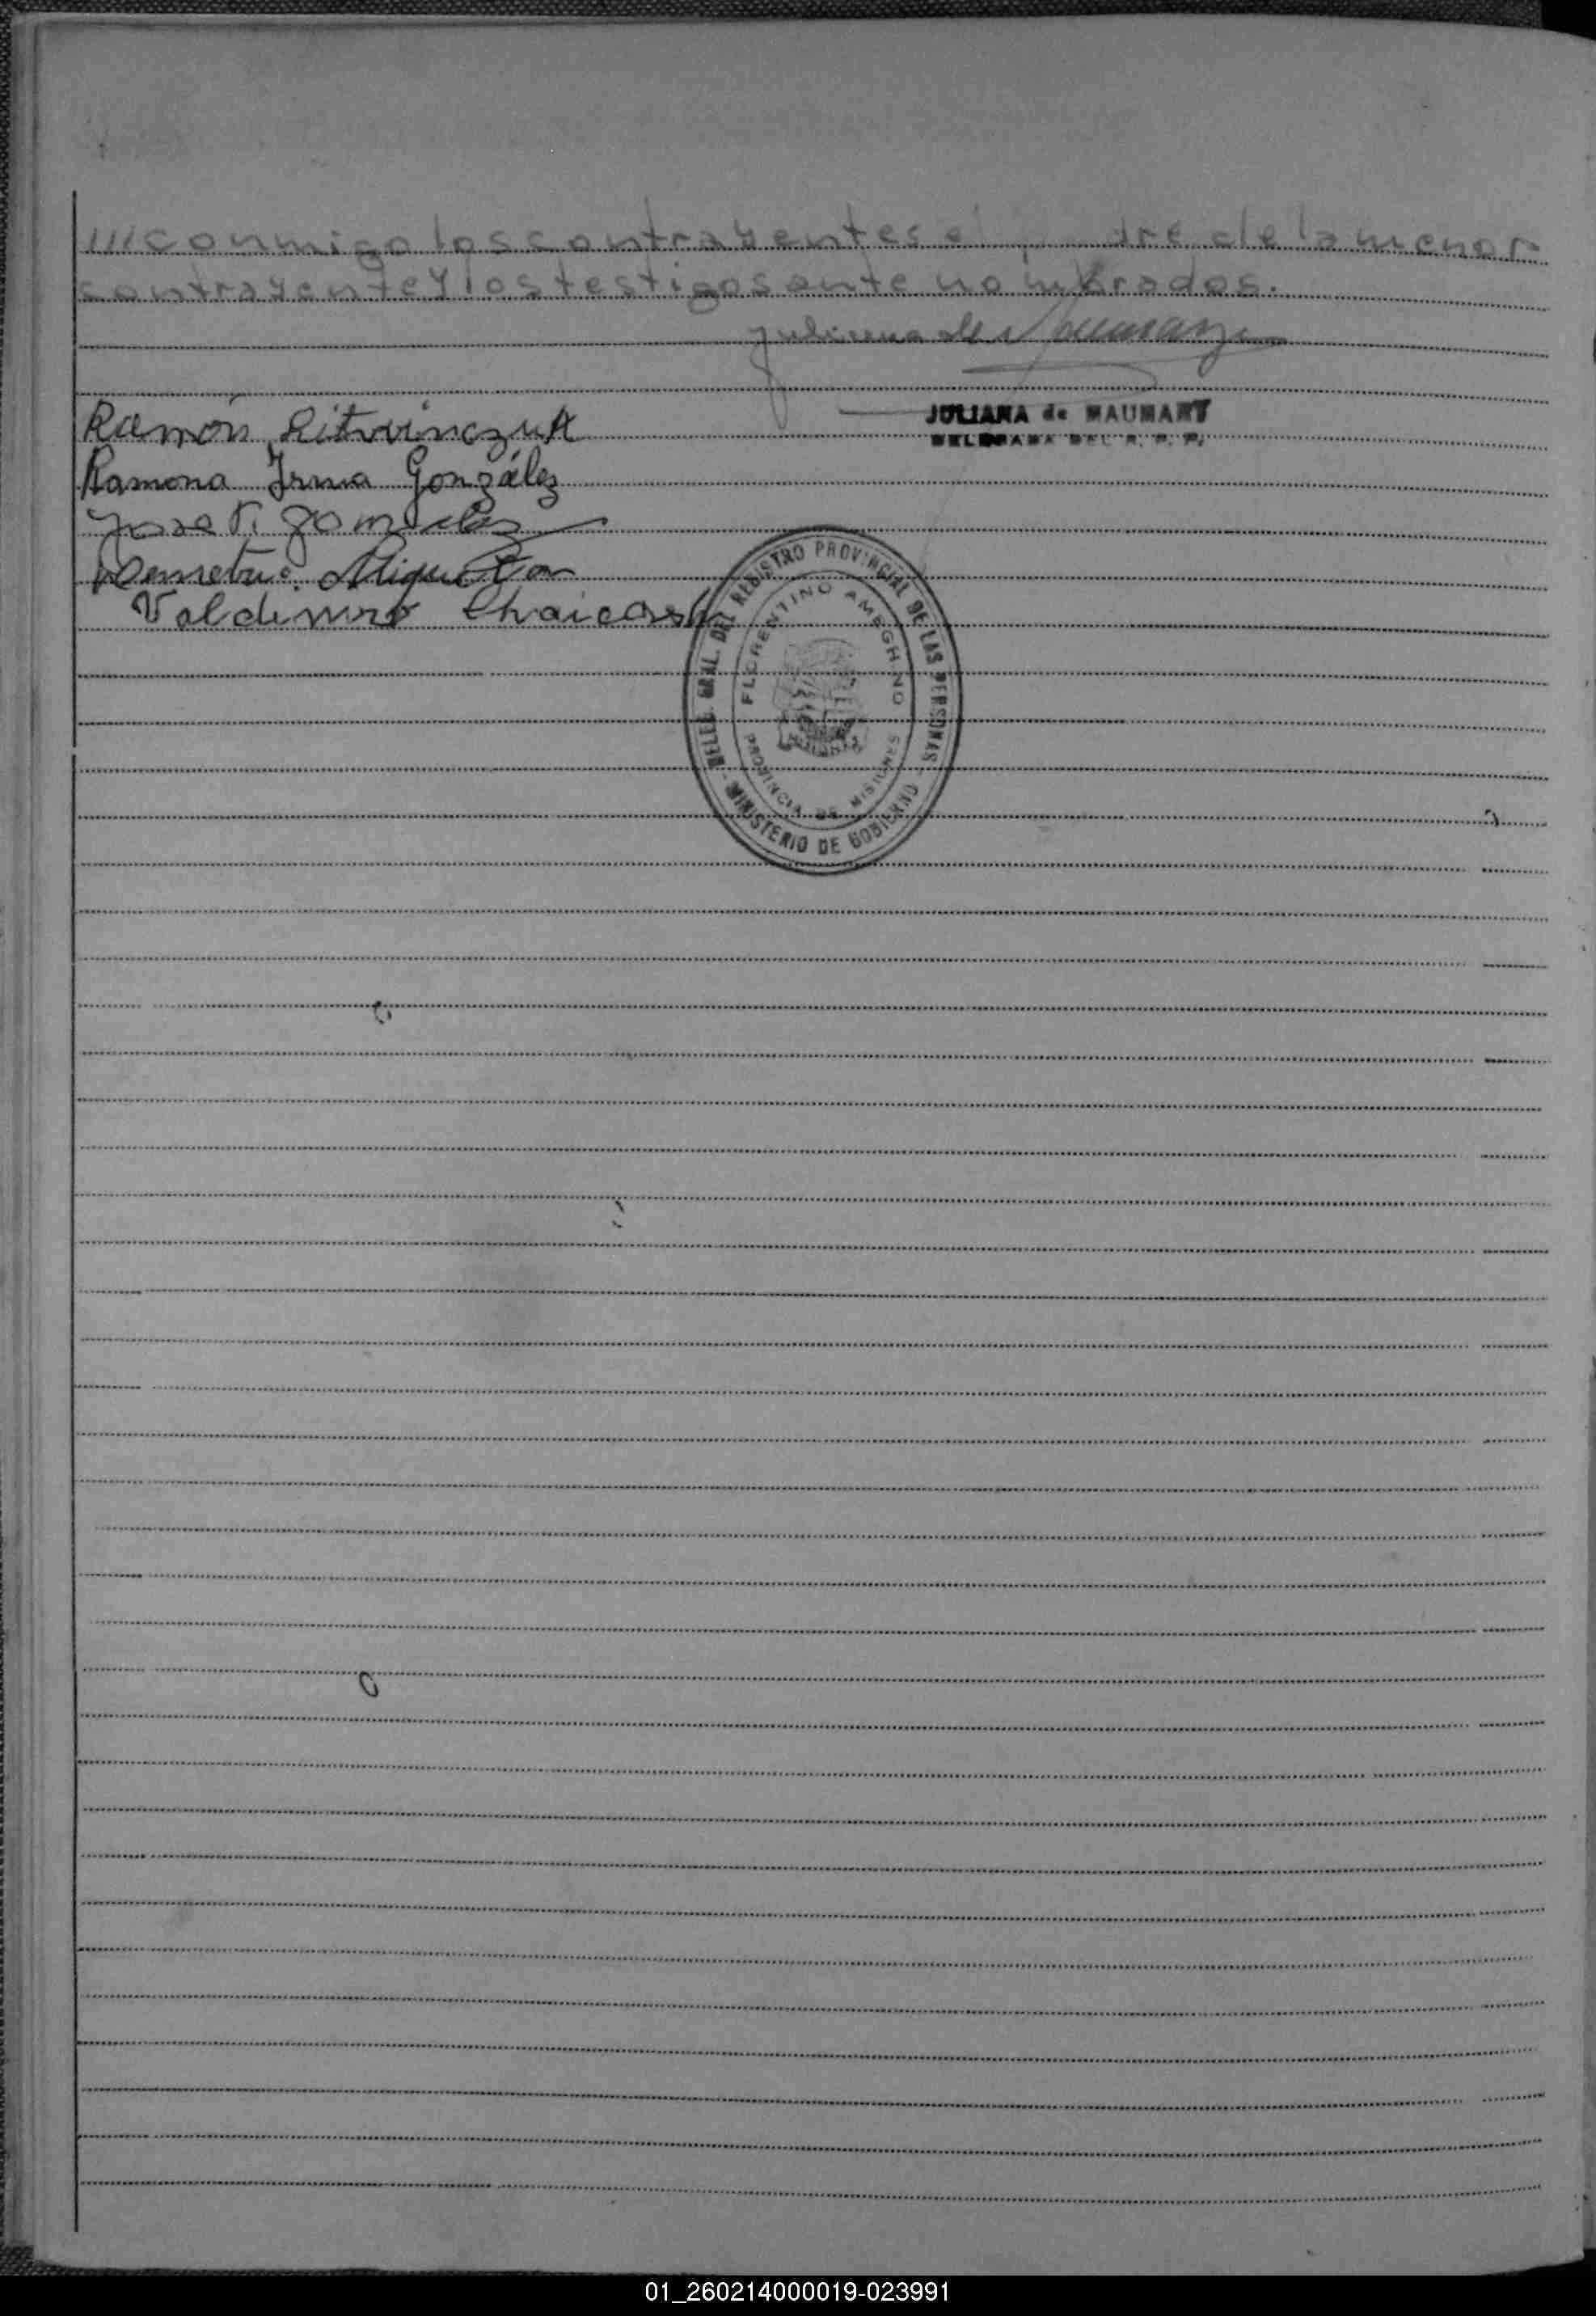 /// conmigo los contrayentes el padre de la menor
contrayente y los testigos ante nombrados.
Juliana de
JULIANA de NAUMANY
DELEGADA DEL R. P. P.
Ramón Litwinczuk
Ramona Irma González
Jose F. Gonzalez
Demetrio
Valdemiro
DELEG. GRAL. DEL REGISTRO PROVINCIAL DE LAS PERSONAS
- MINISTERIO DE GOBIERNO -
FLORENTINO AMEGHINO
PROVINCIA DE MISIONES
01_260214000019-023991